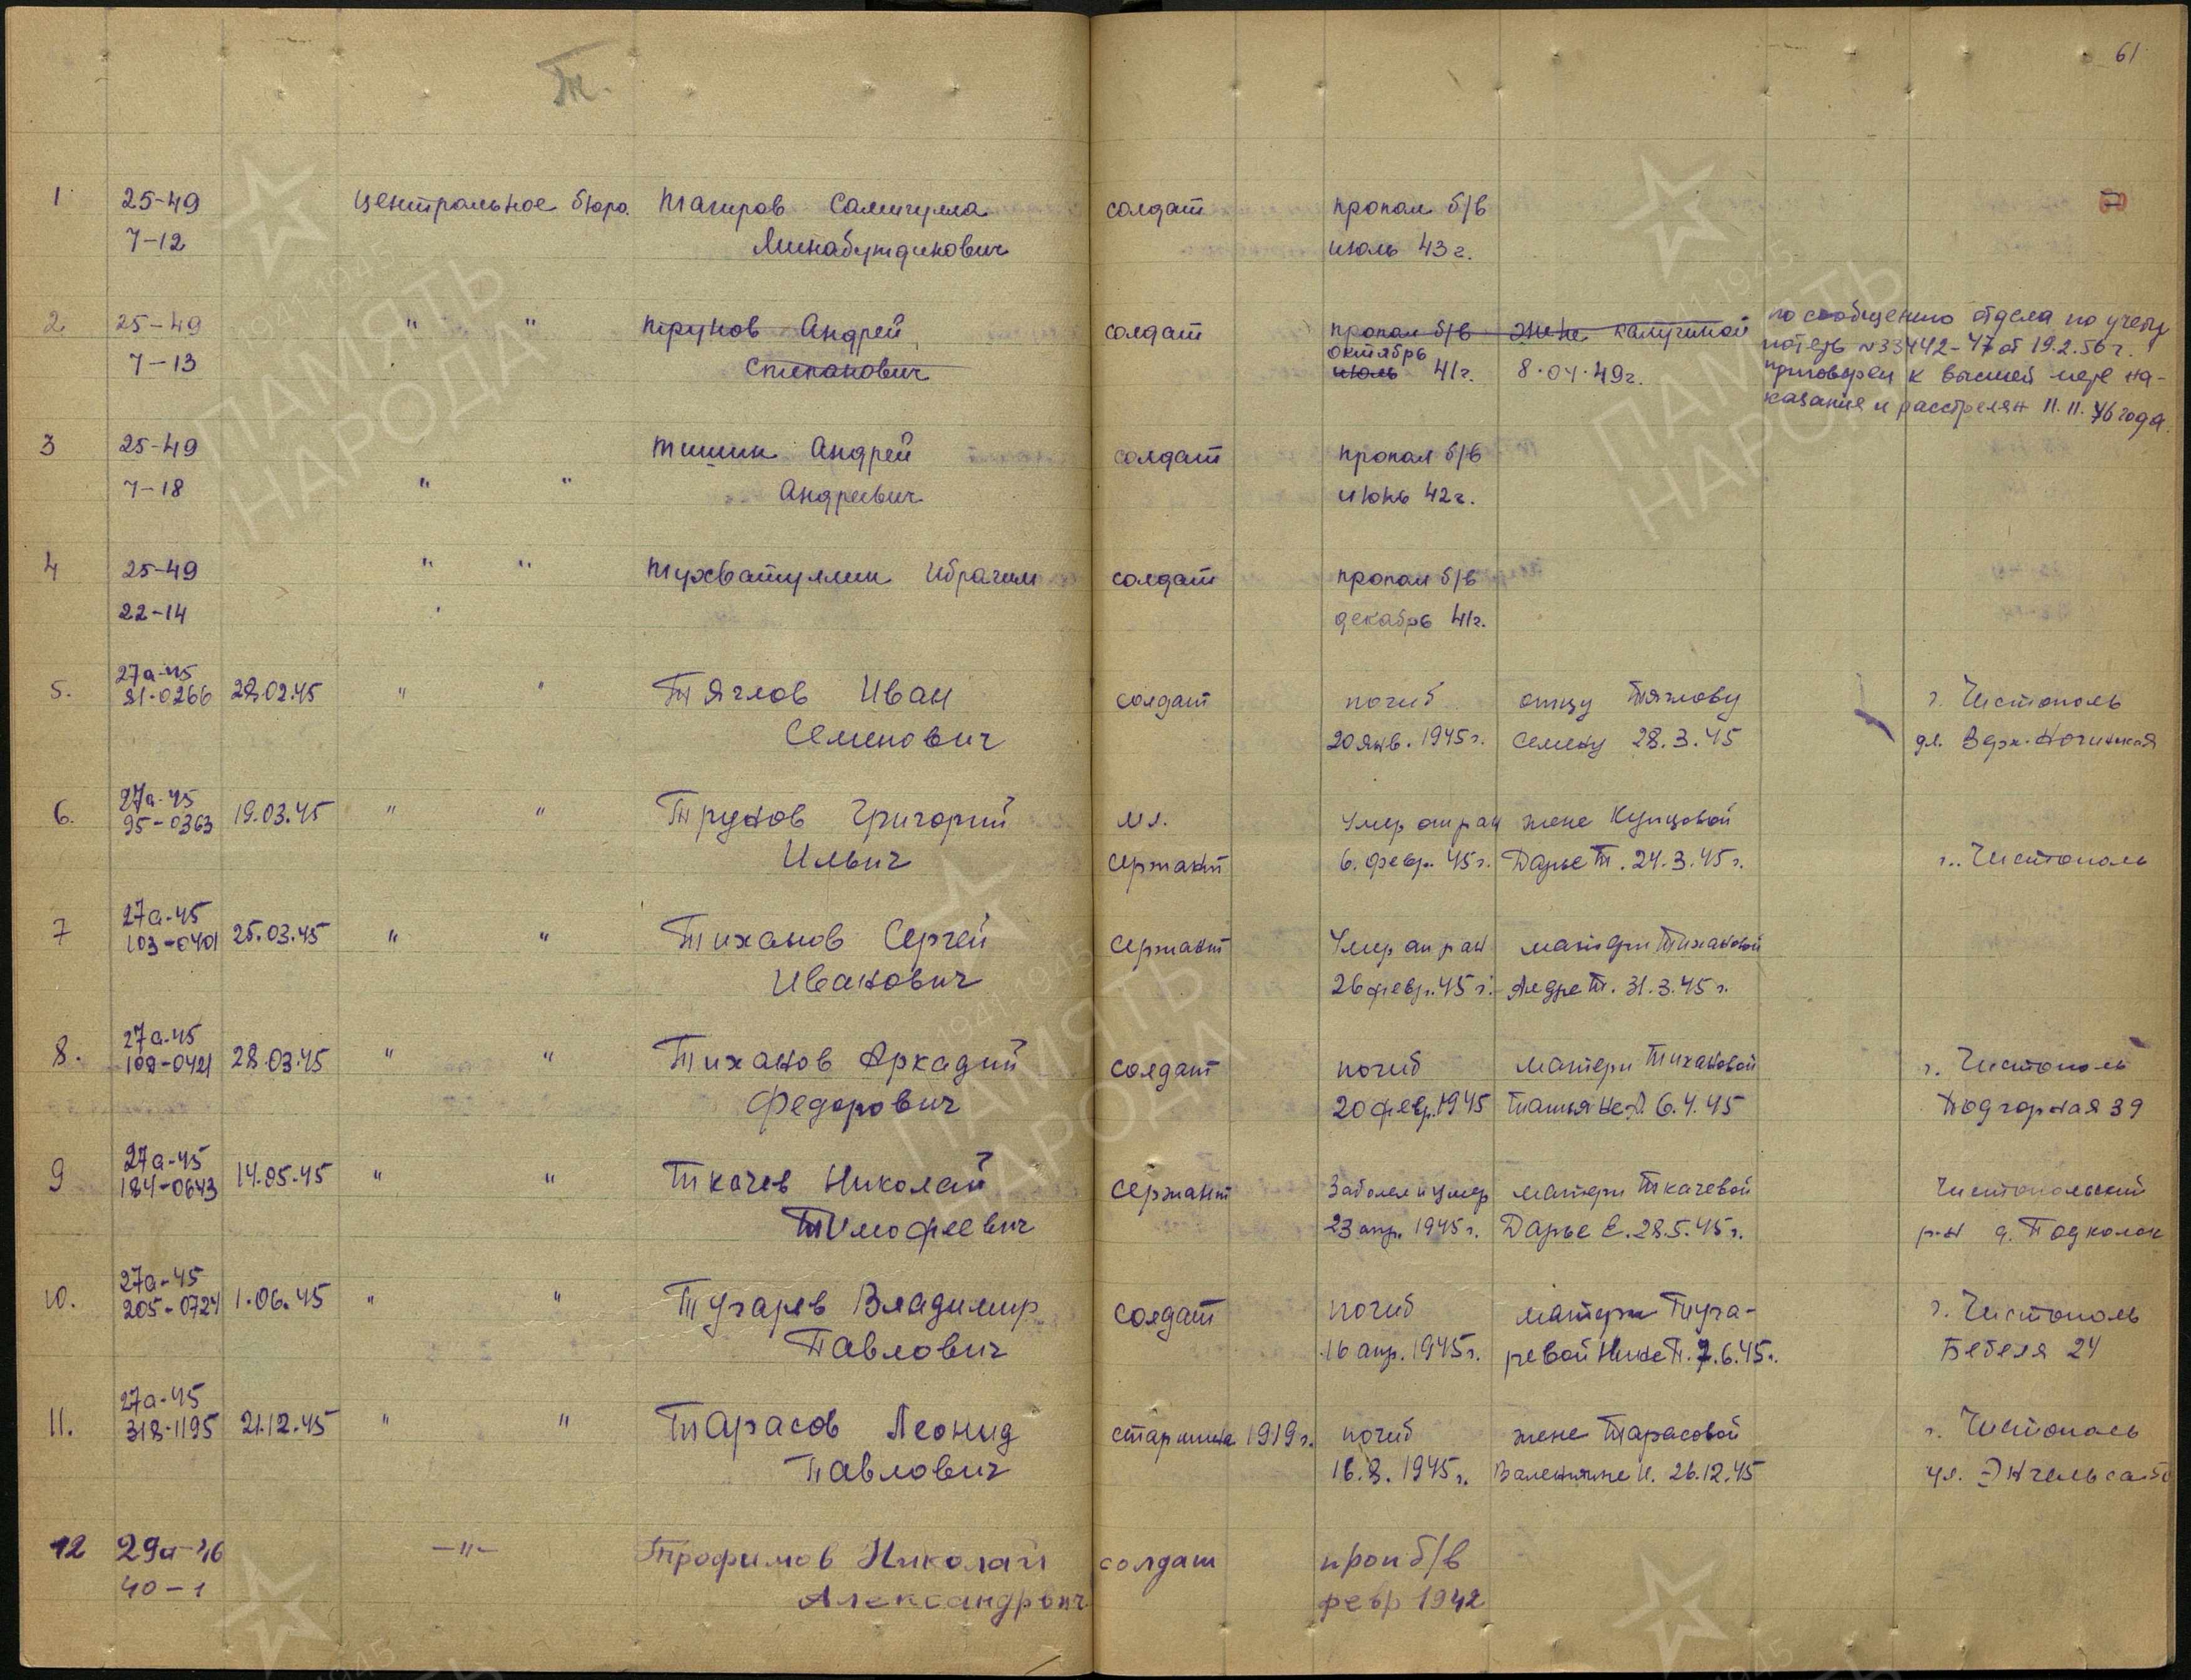 Т.
61
1 25-49 центральное бюро. Тагиров Самигулла солдат пропал б/в
7-12 Минабутдинович июль 43 г.
2 25-49 " " Трунов Андрей солдат пропал б/в жене Калугиной по сообщению отдела по учету
7-13 Степанович октябрь июль 41 г. 8.04.49 г. потерь №33442-47 от 19.2.56 г.
приговорен к высшей мере на-
казания и расстрелян 11.11.46 года.
3 25-49 Тишин Андрей солдат пропал б/в
7-18 " " Андреевич июнь 42 г.
4 25-49 " " Тухватуллин Ибрагим солдат пропал б/в
22-14 декабрь 41 г.
5. 27а-45 81-0266 28.02.45 " " Тяглов Иван солдат погиб отцу Тяглову г. Чистополь
Семенович 20 янв. 1945 г. Семену 28.3.45
6. 27а-45 95-0363 19.03.45 " " Трунов Григорий мл. Умер от ран жене Купцовой
Ильич сержант 6. февр. 45 г. Дарье Т. 24.3.45 г. г. Чистополь
7 27а-45 103-0401 25.03.45 " " Тиханов Сергей сержант Умер от ран матери Тихановой
Иванович 26 февр. 45 г. 31.3.45 г.
8. 27а-45 108-0421 28.03.45 " " Тиханов Аркадий солдат погиб матери Тихановой г. Чистополь
Федорович 20 февр. 1945 Татьяне 6.4.45 Подгорная 39
9 27а-45 184-0643 14.05.45 " " Ткачев Николай сержант Заболел и умер матери Ткачевой Чистопольский
Тимофеевич 23 апр. 1945 г. Дарье Е. 28.5.45 г. р-н д.
10. 27а-45 205-0724 1.06.45 " " Тугарев Владимир солдат погиб матери Туга-
г. Чистополь
Павлович 16 апр. 1945 г. ревой Нине П. 7.6.45 г. Бебеля 24
11. 27а-45 318-1195 21.12.45 " " Тарасов Леонид старшина 1919 г. погиб жене Тарасовой г. Чистополь
Павлович 16.3.1945 г. Валентине И. 26.12.45 ул. Энгельса
12 29а-46 -"- Трофимов Николай солдат проп б/в
40-1 Александрович февр 1942
1941 1945
ПАМЯТЬ
НАРОДА